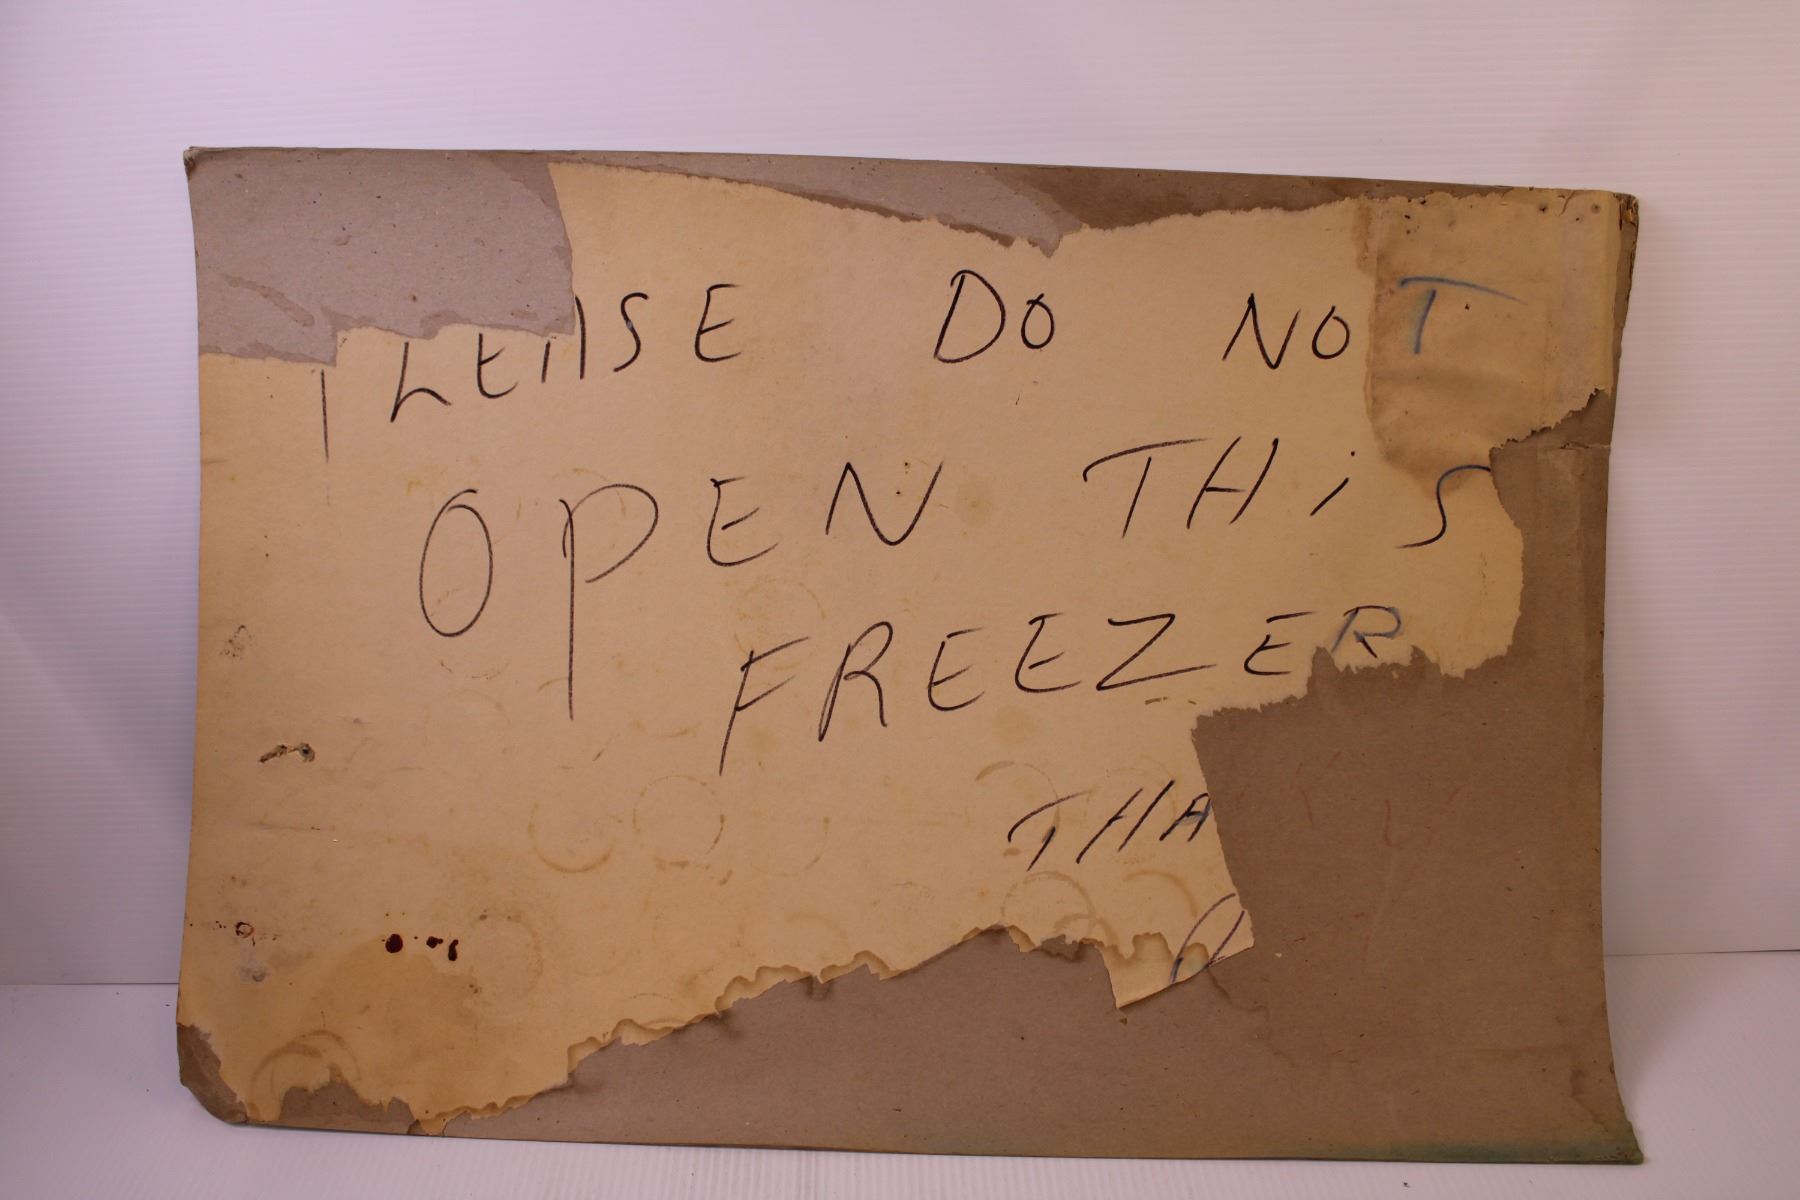 PLEASE DO NOT
OPEN THiS
FREEZER
THA